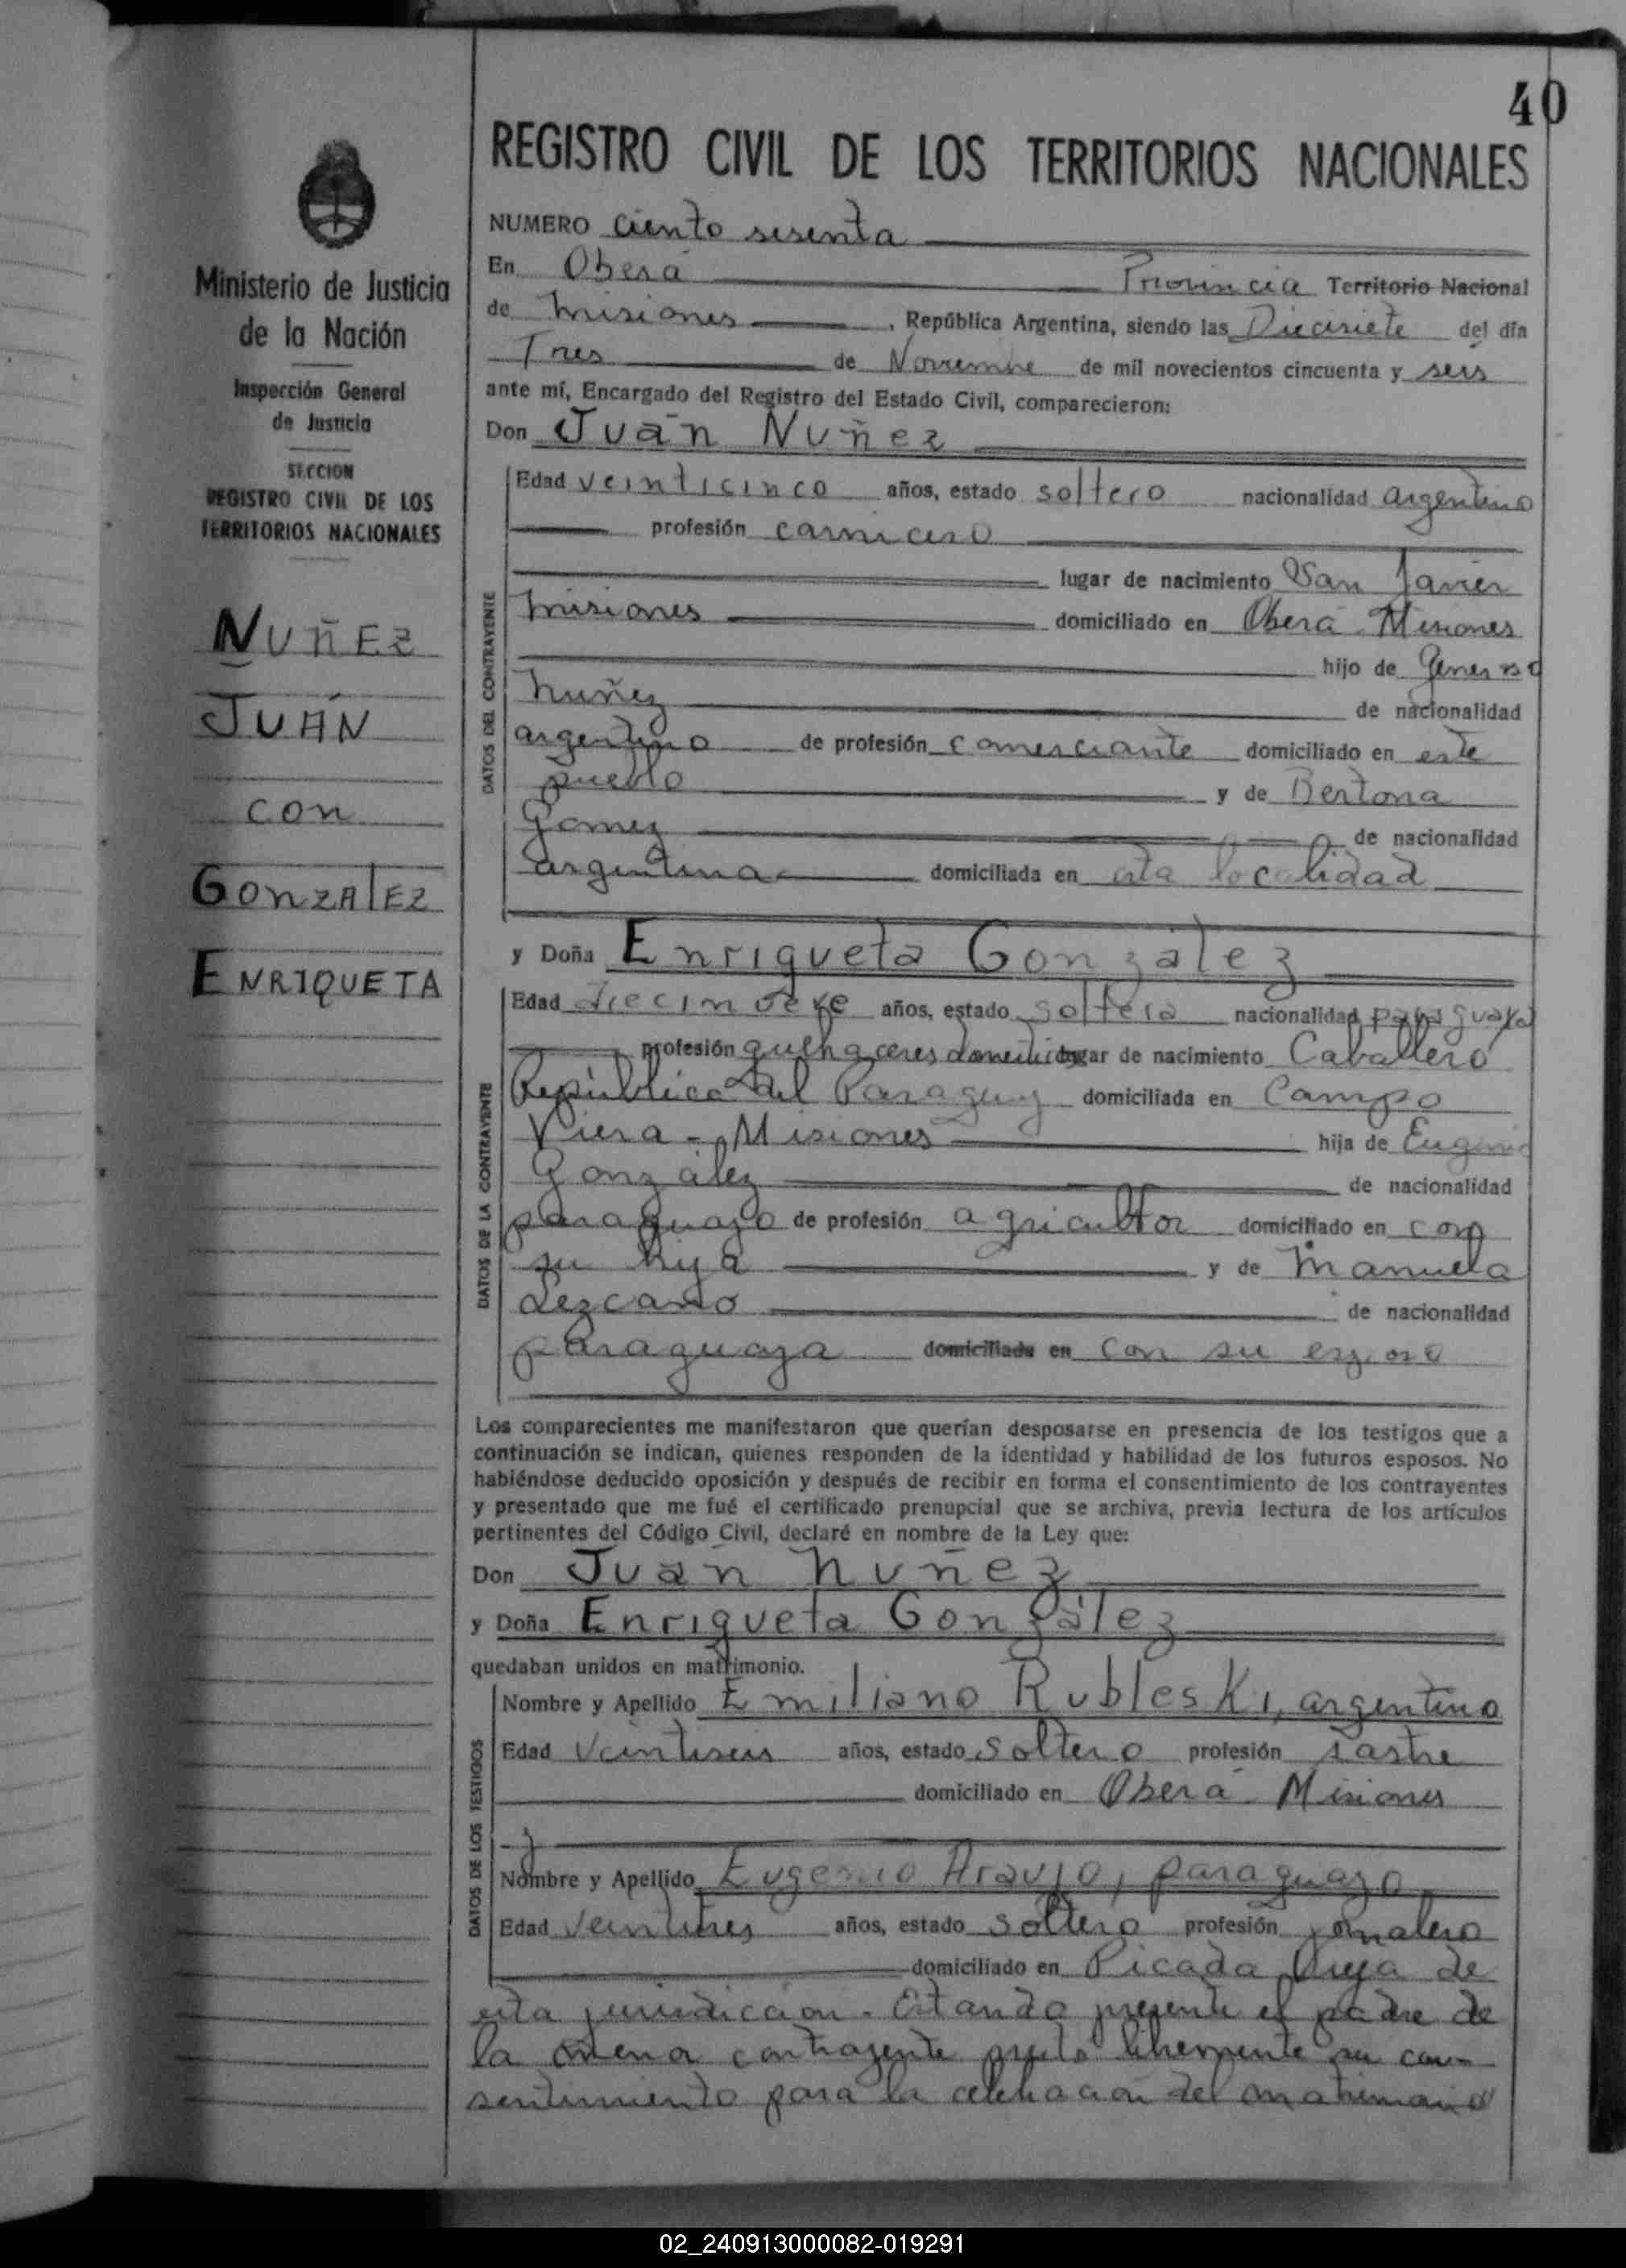 40
REGISTRO CIVIL DE LOS TERRITORIOS NACIONALES
Ministerio de Justicia
de la Nación
Inspección General
de Justicia
SECCION
REGISTRO CIVIL DE LOS
TERRITORIOS NACIONALES
NUÑEZ
JUÁN
con
GONZALEZ
ENRIQUETA
NUMERO ciento sesenta
En Oberá Provincia Territorio Nacional
de Misiones , República Argentina, siendo las Diecisiete del día
Tres de Noviembre de mil novecientos cincuenta y seis
ante mí, Encargado del Registro del Estado Civil, comparecieron:
Don Juán Nuñez
DATOS DEL CONTRAYENTE
Edad veinticinco años, estado soltero nacionalidad argentino
profesión carnicero
lugar de nacimiento San Javier
Misiones domiciliado en Oberá - Misiones
hijo de Generoso
Nuñez de nacionalidad
argentino de profesión comerciante domiciliado en este
pueblo y de Bertona
Gomez de nacionalidad
argentina domiciliada en esta localidad
y Doña Enriqueta González
DATOS DE LA CONTRAYENTE
Edad diecinueve años, estado soltera nacionalidad paraguaya
profesión quehaceres domésticos lugar de nacimiento Caballero
República del Paraguay domiciliada en Campo
Viera - Misiones hija de Eugenio
González de nacionalidad
paraguayo de profesión agricultor domiciliado en con
su hija y de Manuela
Lezcano de nacionalidad
paraguaya domiciliada en con su esposo
Los comparecientes me manifestaron que querían desposarse en presencia de los testigos que a
continuación se indican, quienes responden de la identidad y habilidad de los futuros esposos. No
habiéndose deducido oposición y después de recibir en forma el consentimiento de los contrayentes
y presentado que me fué el certificado prenupcial que se archiva, previa lectura de los artículos
pertinentes del Código Civil, declaré en nombre de la Ley que:
Don Juán Nuñez
y Doña Enriqueta González
quedaban unidos en matrimonio.
DATOS DE LOS TESTIGOS
Nombre y Apellido Emiliano Rubleski, argentino
Edad Veintiseis años, estado soltero profesión sastre
domiciliado en Oberá - Misiones
y
Nombre y Apellido Eugenio Araujo, paraguayo
Edad Veintitres años, estado soltero profesión jornalero
domiciliado en Picada Vieja de
esta jurisdicción. Estando presente el padre de
la menor contrayente prestó libremente su con-
sentimiento para la celebración del matrimonio
02_240913000082-019291